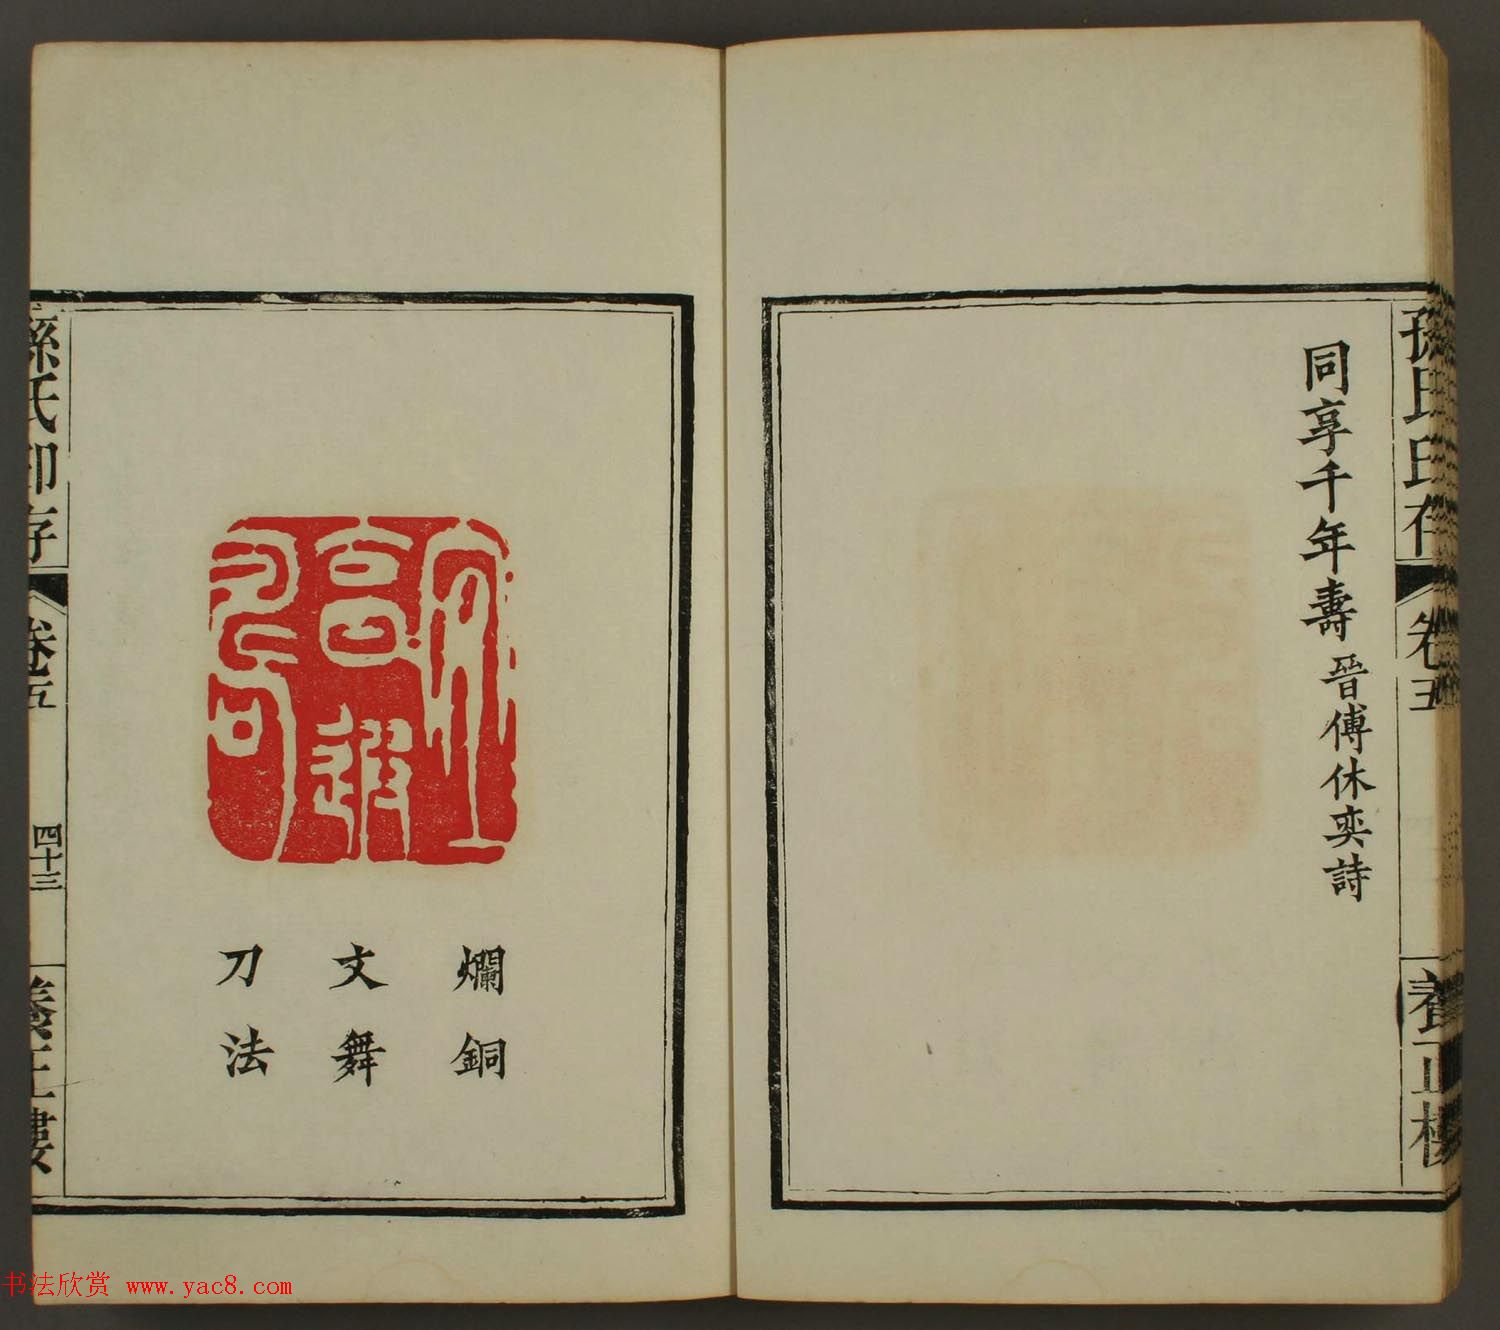 孫氏印存
卷五
養正樓
同享千年壽 晉傅休奕詩
爛銅
文舞
刀法
孫氏印存
卷五
四十三
養正樓
书法欣赏 www.yac8.com